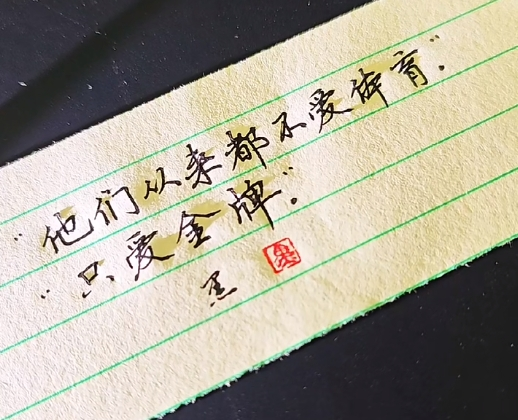 "他们从来都不爱体育."
"只爱金牌."